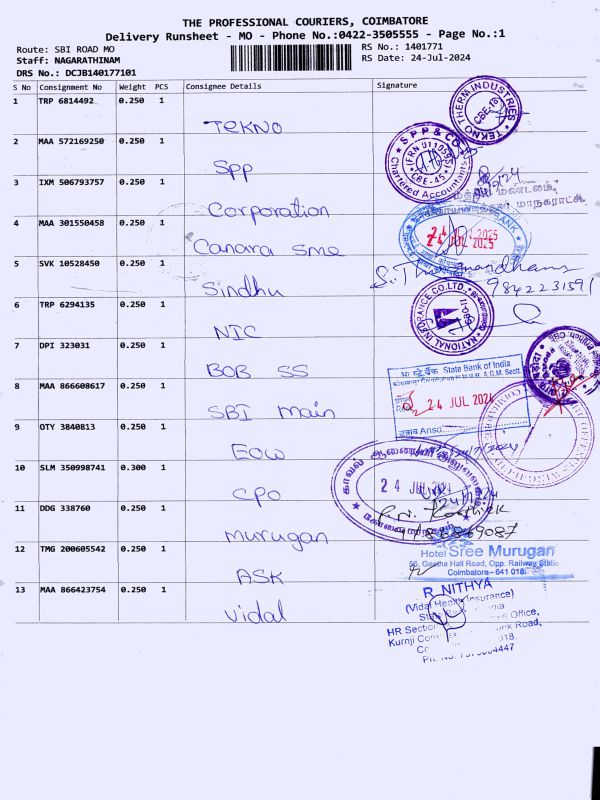 THE PROFESSIONAL COURIERS, COIMBATORE
Delivery Runsheet - MO - Phone No.:0422-3505555 - Page No.:1
Route: SBI ROAD MO
RS No.: 1401771
Staff: NAGARATHINAM
RS Date: 24-Jul-2024
DRS No.: DCJB140177101
S No Consignment No Weight PCS Consignee Details Signature
1 TRP 6814492 0.250 1
TEKNO
TEKNO THERM INDUSTRIES
CBE-18
2 MAA 572169250 0.250 1
SPP
SPP & CO.
CBE-45
Chartered Accountants
3 IXM 506793757 0.250 1
Corporation
4 MAA 301550458 0.250 1
Canara sme
24 JUL 2025
5 SVK 10528450 0.250 1
Sindhu
9842231591
6 TRP 6294135 0.250 1
NIC
NATIONAL INSURANCE CO.LTD.
7 DPI 323031 0.250 1
BOB SS
State Bank of India
8 MAA 866608617 0.250 1
SBI Main
24 JUL 2024
9 OTY 3840813 0.250 1
EOW
10 SLM 350998741 0.300 1
CPO
11 DDG 338760 0.250 1
Murugan
Hotel Sree Murugan
55, Geetha Hall Road, Opp. Railway Statio
Coimbatore - 641 018.
12 TMG 200605542 0.250 1
ASK
13 MAA 866423754 0.250 1
Vidal
R. NITHYA
(Vidal Health Insurance)
HR Section
Office,
Road,
018.